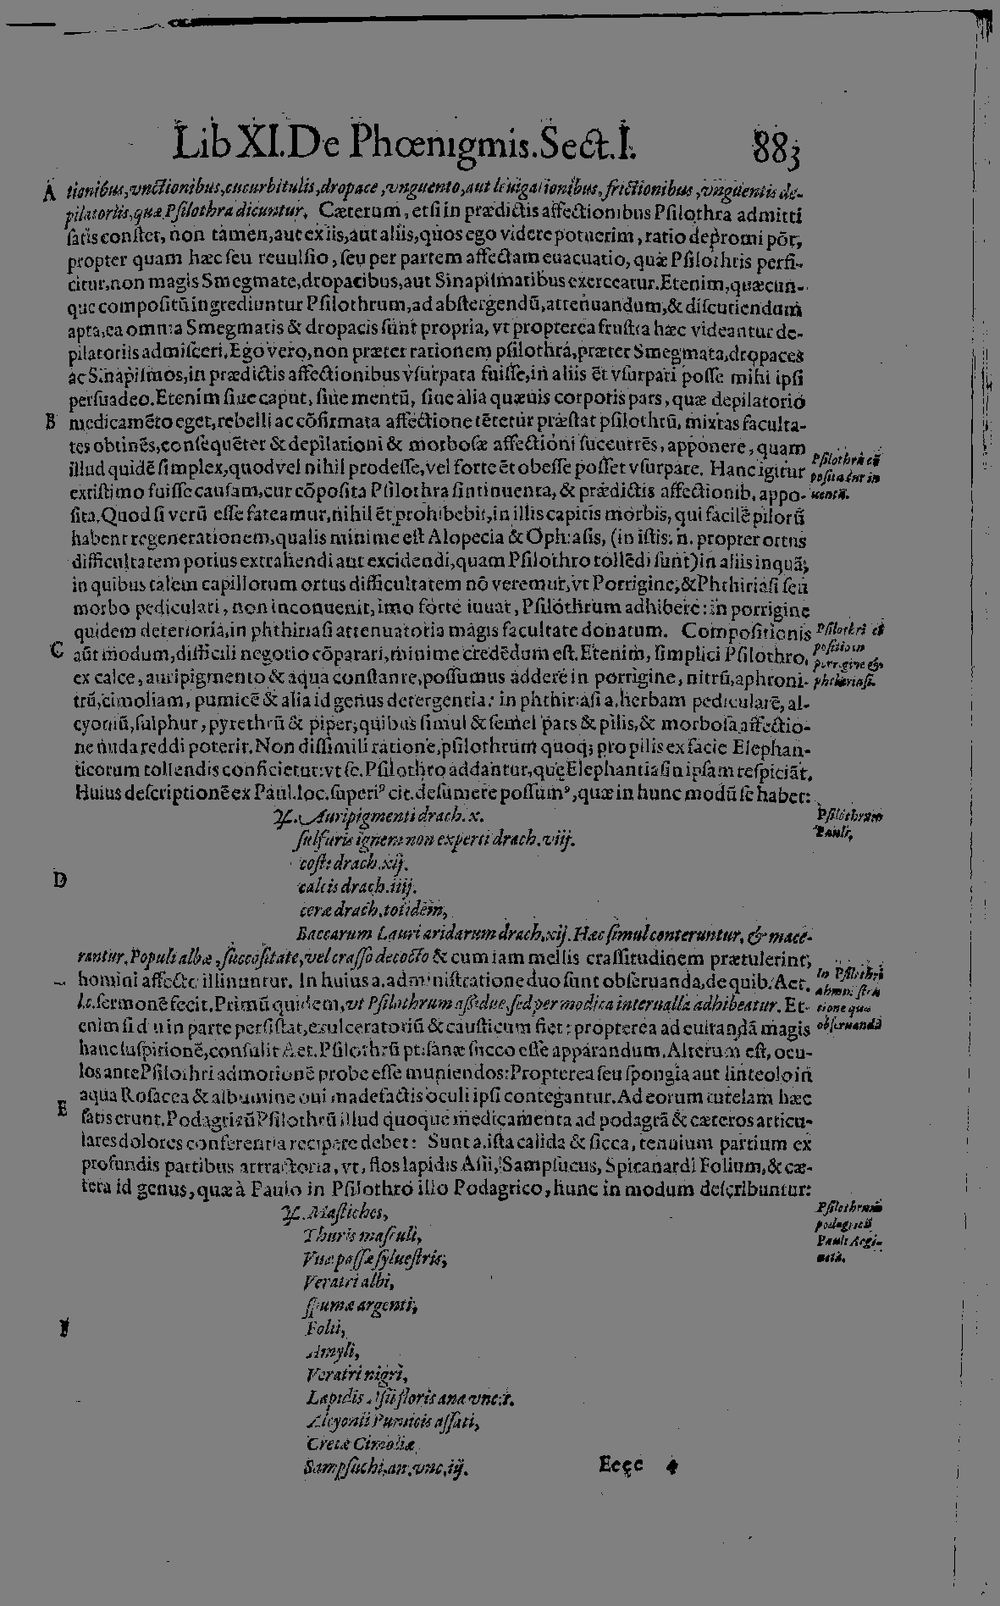 Lib XI. De Phœnigmis. Sect. I. 883
A tionibus, vnctionibus, cucurbitulis, dropace, vnguento, aut leuigationibus, frictionibus, vnguentis de-
pilatoriis, quæ Psilothra dicuntur. Cæterum, etsi in prædictis affectionibus Psilothra admitti
satis constet, non tamen, aut ex iis, aut aliis, quos ego videre potuerim, ratio depromi põt,
propter quam hæc seu reuulsio, seu per partem affectam euacuatio, quæ Psilothris perfi-
citur, non magis Smegmate, dropacibus, aut Sinapismatibus exerceatur. Etenim, quæcun-
que compositũ ingrediuntur Psilothrum, ad abstergendũ, attenuandum, & discutiendum
apta, ea omnia Smegmatis & dropacis sunt propria, vt propterea frustra hæc videantur de-
pilatoriis admisceri. Ego vero, non præter rationem psilothra, præter Smegmata, dropaces
ac Sinapismos, in prædictis affectionibus vsurpata fuisse, in aliis ẽt vsurpari posse mihi ipsi
persuadeo. Etenim siue caput, siue mentũ, siue alia quæuis corporis pars, quæ depilatorio
B medicamẽto eget, rebelli ac cõfirmata affectione tẽtetur præstat psilothrũ, mixtas faculta-
tes obtinẽs, consequẽter & depilationi & morbosæ affectioni sucurrẽs, apponere, quam
illud quidẽ simplex, quod vel nihil prodesse, vel forte ẽt obesse posset vsurpare. Hanc igitur
existimo fuisse causam, cur cõposita Psilothra sint inuenta, & prædictis affectionib. appo-
sita. Quod si verũ esse fateamur, nihil ẽt prohibebit, in illis capitis morbis, qui facilẽ pilorũ
habent regenerationem, qualis minime est Alopecia & Ophiasis, (in istis. n. propter ortus
difficultatem potius extrahendi aut excidendi, quam Psilothro tollẽdi sunt) in aliis inquã,
in quibus talem capillorum ortus difficultatem nõ veremur, vt Porrigine, & Phthiriasi seu
morbo pediculari, non inconuenit, imo forte iuuat, Psilothrum adhibere: in porrigine
quidem deterioria, in phthiriasi attenuatoria magis facultate donatum. Compositionis
C aũt modum, difficili negotio cõparari, minime credẽdum est. Etenim, simplici Psilothro,
ex calce, auripigmento & aqua constante, possumus addere in porrigine, nitrũ, aphroni-
trũ, cimoliam, pumicẽ & alia id genus detergentia: in phthiriasi a, herbam pedicularẽ, al-
cyoniũ, sulphur, pyrethrũ & piper, quibus simul & semel pars & pilis, & morbosa affectio-
ne nuda reddi poterit. Non dissimili ratione, psilothrum quoq; pro pilis ex facie Elephan-
ticorum tollendis conficietur: vt sc. Psilothro addantur, quę Elephantiasin ipsam respiciãt.
Huius descriptionẽ ex Paul. loc. superiꝰ cit. desumere possumꝰ, quæ in hunc modũ se habet:
Psilothra cũ
posita cur in
uenta.
Psilothri cõ
positio in
porrigine &
phthiriasi.
Psilothrum
Pauli.
♃. Auripigmenti drach. x.
sulfuris ignem non experti drach. viij.
costi drach. xij.
D calcis drach. iiij.
ceræ drach. totidem,
Baccarum Lauri aridarum drach. xij. Hæc simul conteruntur, & mace-
rantur, Populi albæ, succositate, vel crasso decocto & cum iam mellis crassitudinem prætulerint,
homini affecto illinuntur. In huius a. administratione duo sunt obseruanda, de quib. Aet.
hc. sermonẽ fecit. Primũ quidem, vt Psilothrum assidue, sed per modica interualla adhibeatur. Et-
enim si diu in parte persistat, exulceratoriũ & causticum fiet: propterea ad euitandã magis
hanc suspitionẽ, consulit Aet. Psilothrũ ptisanæ succo esse apparandum. Alterum est, ocu-
los ante Psilothri admotionẽ probe esse muniendos: Propterea seu spongia aut linteolo in
aqua Rosacea & albumine oui madefactis oculi ipsi contegantur. Ad eorum tutelam hæc
E satis erunt. Podagricũ Psilothrũ illud quoque medicamenta ad podagrã & cæteros articu-
lares dolores conferentia recipere debet: Sunt a. ista calida & sicca, tenuium partium ex
profundis partibus attractoria, vt, flos lapidis Asii, Sampsucus, Spicanardi Folium, & cæ-
tera id genus, quæ à Paulo in Psilothro illo Podagrico, hunc in modum describuntur:
In Psilothri
admini stra
tione quæ
obseruanda
Psilothrum
podagricũ
Pauli Aegi-
netæ.
♃. Mastiches,
Thuris masculi,
Vuæ passæ syluestris,
Veratri albi,
spumæ argenti,
F Folii,
Amyli,
Veratri nigri,
Lapidis Asii floris ana vnc. i.
Alcyonii Pumicis assati,
Cretæ Cimoliæ
Sampsuchi, an. vnc. iij.
Eeee 4